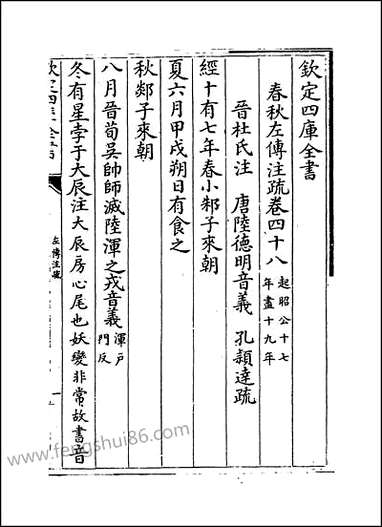 欽定四庫全書
春秋左傳注疏卷四十八 起昭公十七
年盡十九年
晉杜氏注 唐陸德明音義 孔穎達疏
經十有七年春小邾子來朝
夏六月甲戌朔日有食之
秋郯子來朝
八月晉荀吳帥師滅陸渾之戎音義 渾戶
門反
冬有星孛于大辰注大辰房心尾也妖變非常故書音
左傳注疏
一
www.fengshui86.com